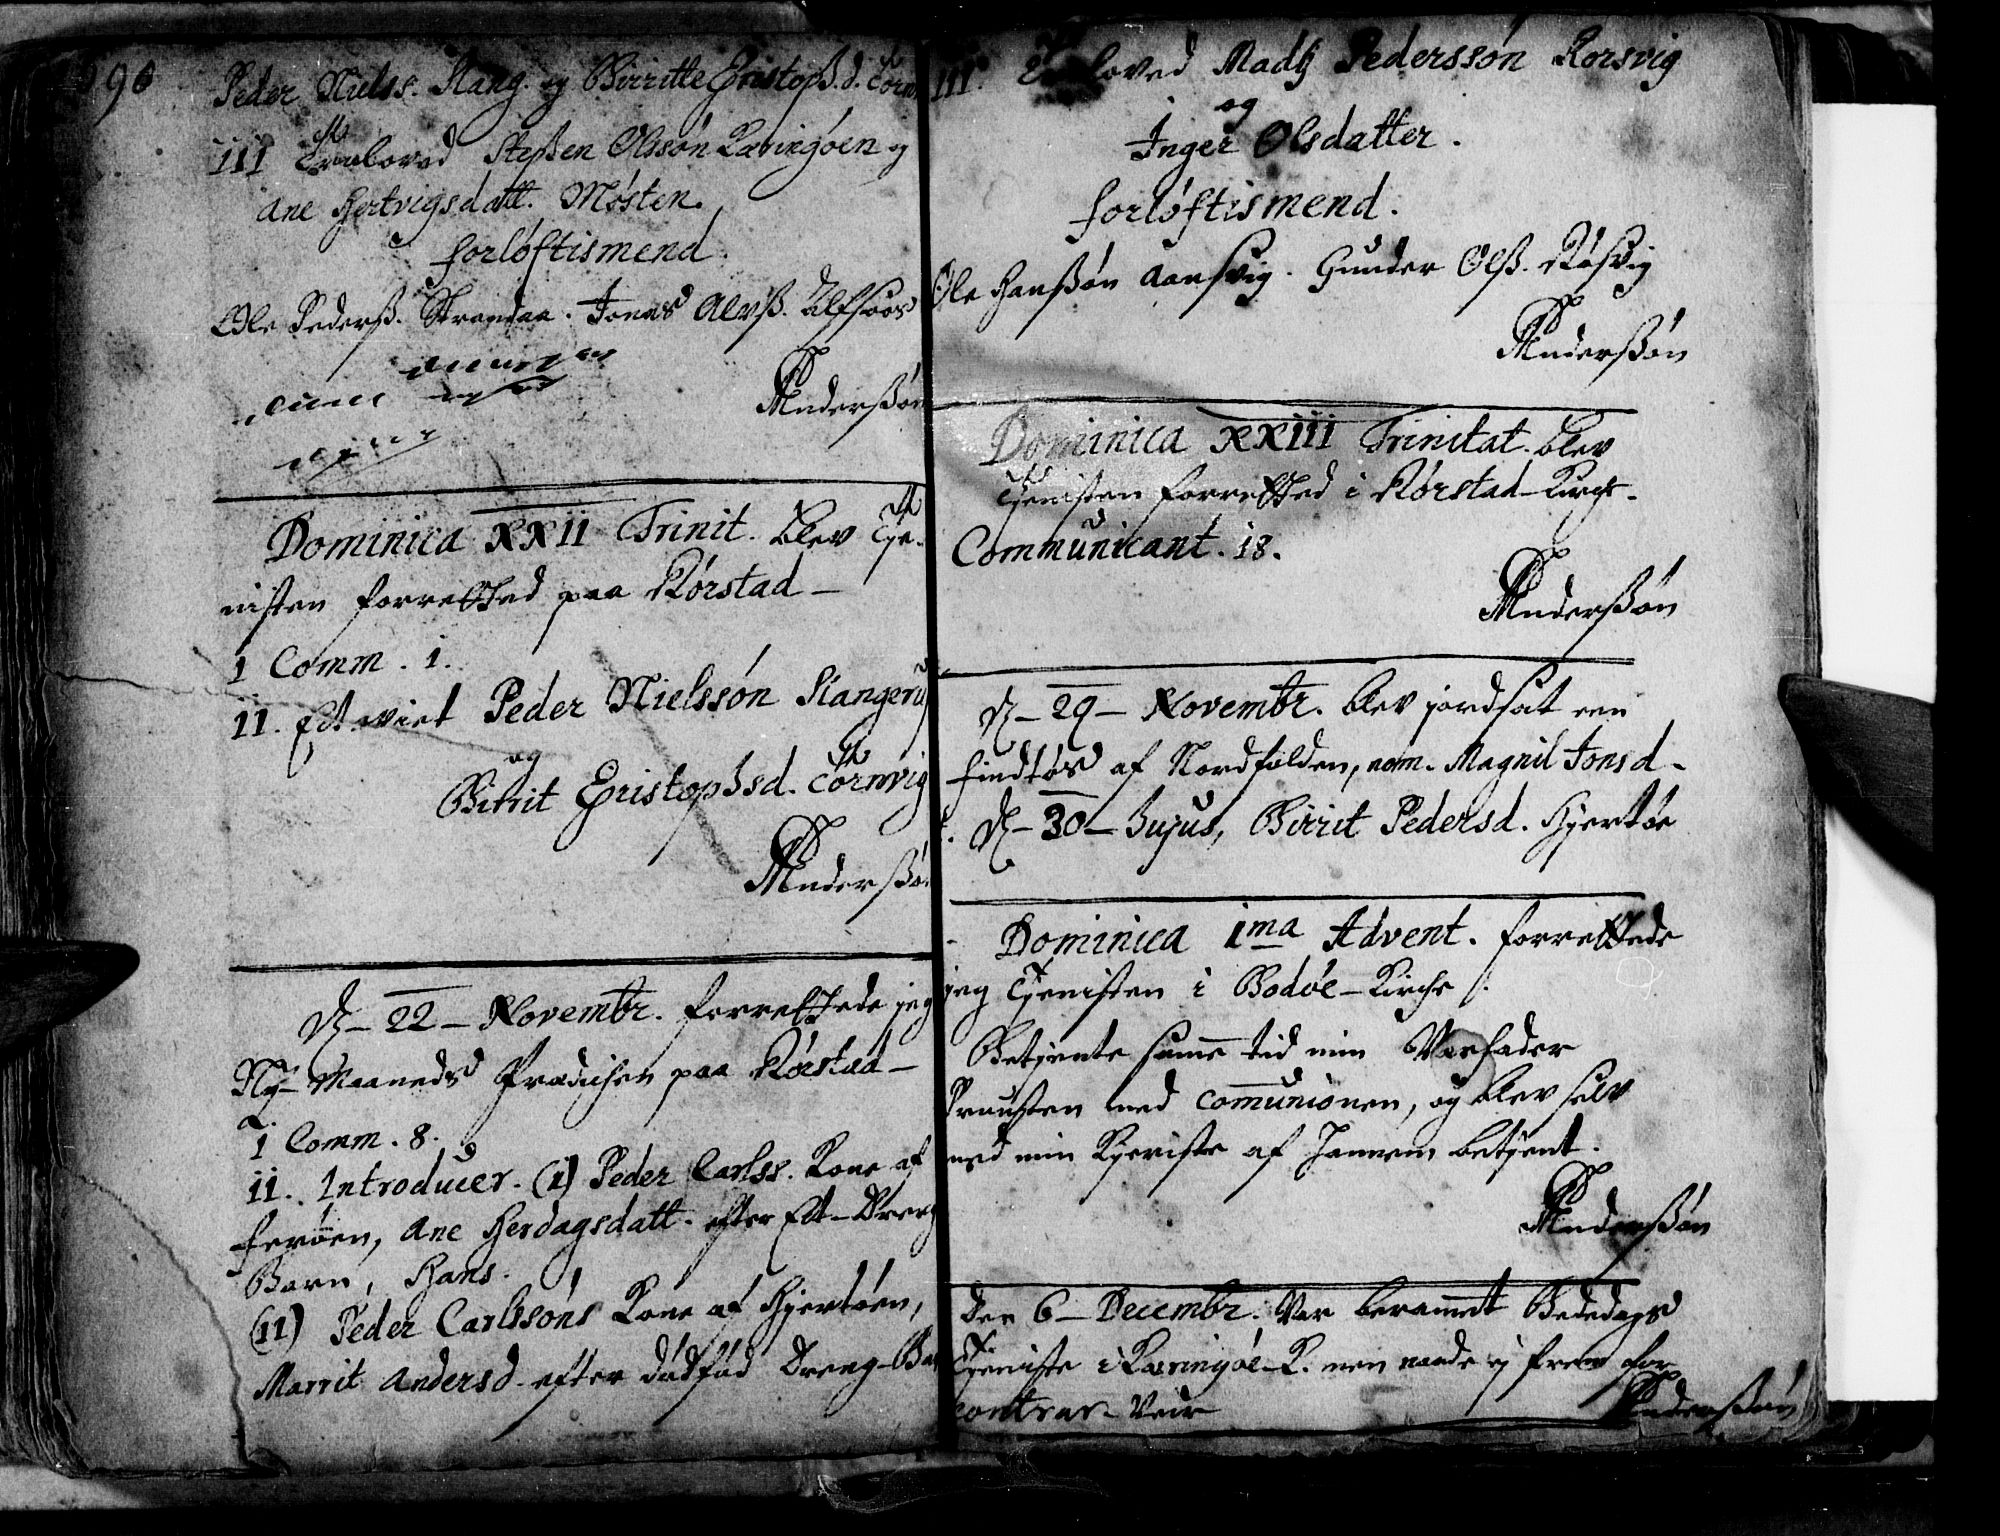 190
Peder Nielss. Slang. og Birritte Christoph.d. Tørn
III Troeloved Stephen Olssøn Karingøen og
Ane Hertvigsdatt. Møsten.
forløftismend.
Ole Pederß. Strandaa. Jonas Alvß.
Anderßøn
Dominica XXII Trinit. blev Tje-
nisten forretted paa Rørstad -
1 Comm. 1.
II. Ect. viet Peder Nielssøn Slangerup
og
Birrit Christophsd. Tørnvig
Anderßøn
D - 22 - Novembr. forrettede jeg
Ny-Maaneds Prædichen paa Rørstad -
1 Comm. 8.
II. Introducer. (1) Peder Carlss. Kone af
Ferøen, Ane Herdagsdatt. efter Ect-Dreng
Barn, Hans.
(11) Peder Carlssøns Kone af Hjertøen,
Marrit Andersd. efter dødfød Dreng-Ba
III. Troeloved Madtz Pederssøn Korsvig
og
Inger Olsdatter.
forløftismend.
Ole Hanßøn Aansvig. Gunder Olß. Røsvig
Anderßøn
Dominica XXIII Trinitat. blev
Tjenisten forretted i Rørstad-Kirche.
Communicant. 18.
Anderßøn
D - 29 - Novembr. blev jordsat een
findtøs af Nordfolden, nom. Magnil Jonsd -
D - 30 - hujus, Birrit Pedersd. Hjertøe
Dominica 1ma Advent. forrettede
jeg Tjenisten i Bodøe-Kirche.
Betjente samme tid min Værfader
Prousten med Communionen, og blev selv
med min Kjeriste af hannem betjent.
Anderßøn
Den 6 - Decembr. Var berammet Bededags
Tjeniste i Karingøe-K. men naade ej frem for
contrar Veir
Anderßøn